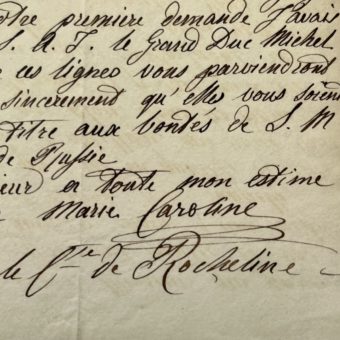 otre première demande j'avais
S. A. I. le Grand Duc Michel
e ces lignes vous parviendront
sincèrement qu'elles vous soient
titre aux bontés de S. M
de Russie
ieur et toute mon estime
Marie Caroline
le Cte de Rocheline